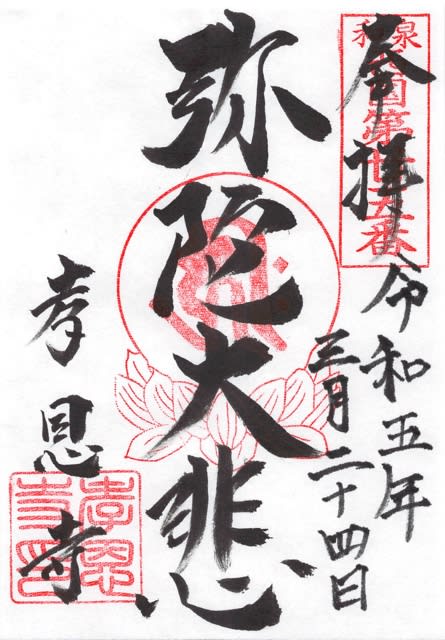 奉拝
令和五年
三月二十四日
弥陀大悲
孝恩寺
和泉
国第
番
孝恩
寺印